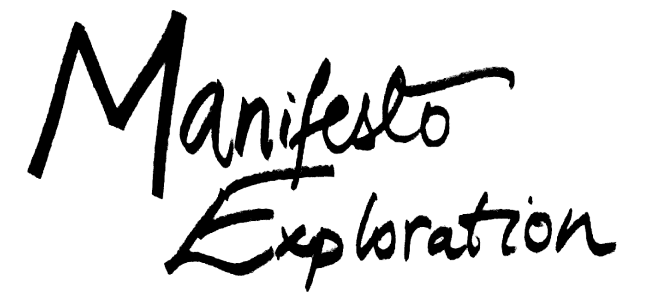 Manifesto
Exploration